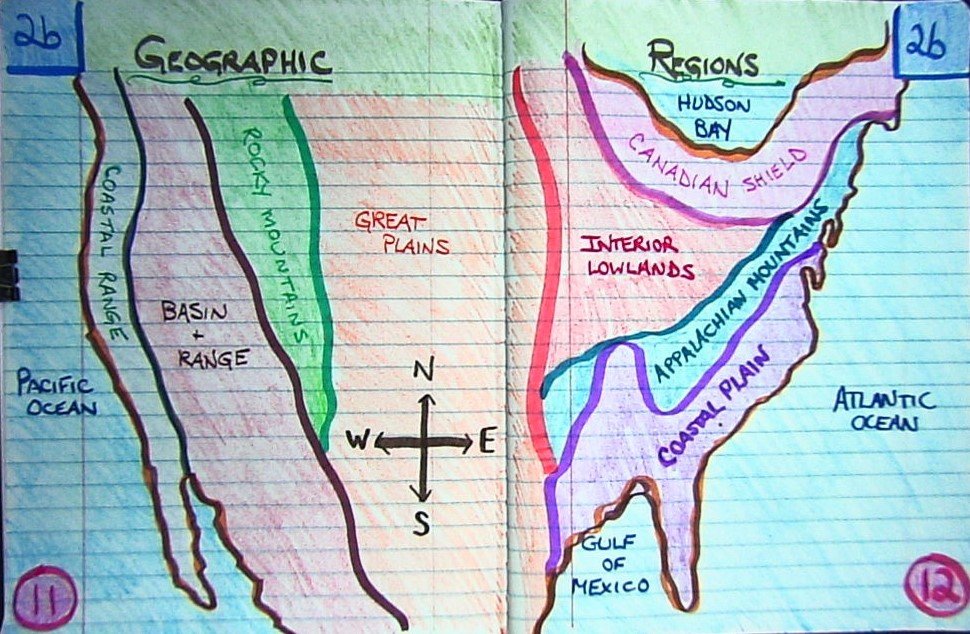 2b
GEOGRAPHIC
REGIONS
2b
HUDSON
BAY
CANADIAN SHIELD
COASTAL RANGE
ROCKY MOUNTAINS
GREAT
PLAINS
INTERIOR
LOWLANDS
APPALACHIAN MOUNTAINS
BASIN
+
RANGE
PACIFIC
OCEAN
N
W E
S
COASTAL PLAIN
ATLANTIC
OCEAN
GULF
OF
MEXICO
11
12